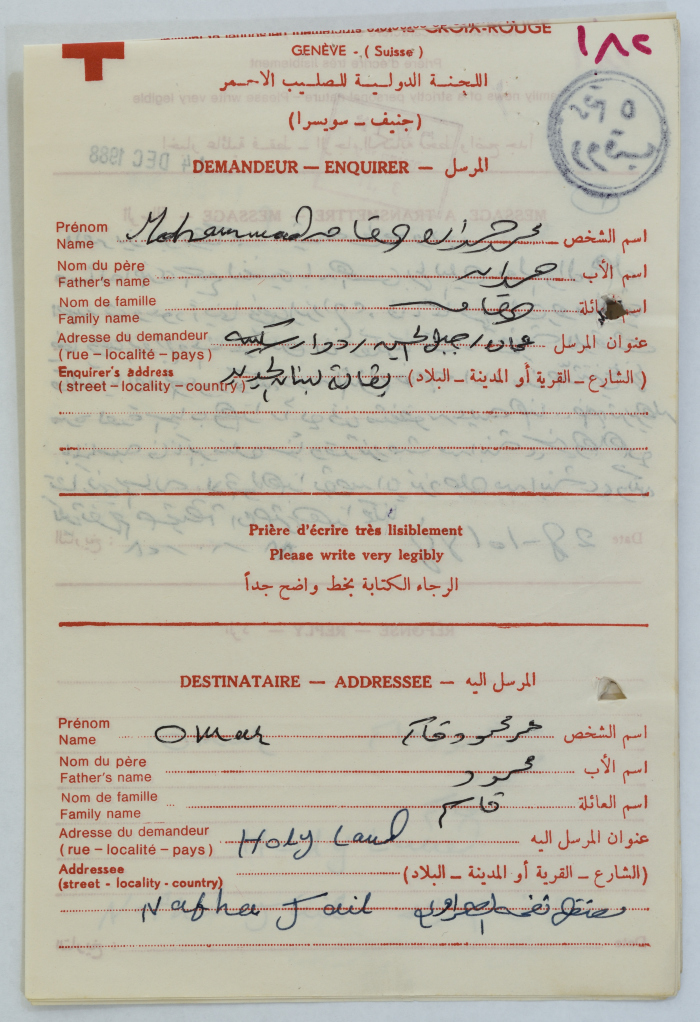 CROIX-ROUGE
١٨٢
GENÈVE - ( Suisse )
اللجنة الدولية للصليب الأحمر
(جنيف ــ سويسرا)
DEMANDEUR — ENQUIRER — المرسل
Prénom
Name
Mohammad محمد حمدان
اسم الشخص
Nom du père
Father's name
حمدان
اسم الأب
Nom de famille
Family name
اسم العائلة
Adresse du demandeur
( rue – localité – pays )
عمان / جبل الحسين / دوار
عنوان المرسل
Enquirer's address
( street – locality – country )
بقالة لبنان الجديد
( الشارع ــ القرية أو المدينة ــ البلاد )
Prière d'écrire très lisiblement
Please write very legibly
الرجاء الكتابة بخط واضح جداً
DESTINATAIRE — ADDRESSEE — المرسل اليه
Prénom
Name
Omar عمر محمود قاسم
اسم الشخص
Nom du père
Father's name
محمود
اسم الأب
Nom de famille
Family name
قاسم
اسم العائلة
Adresse du demandeur
( rue – localité – pays )
Holy Land
عنوان المرسل اليه
Addressee
(street - locality - country)
(الشارع ــ القرية أو المدينة ــ البلاد)
Nafha Jail معتقل نفحه الصحراوي